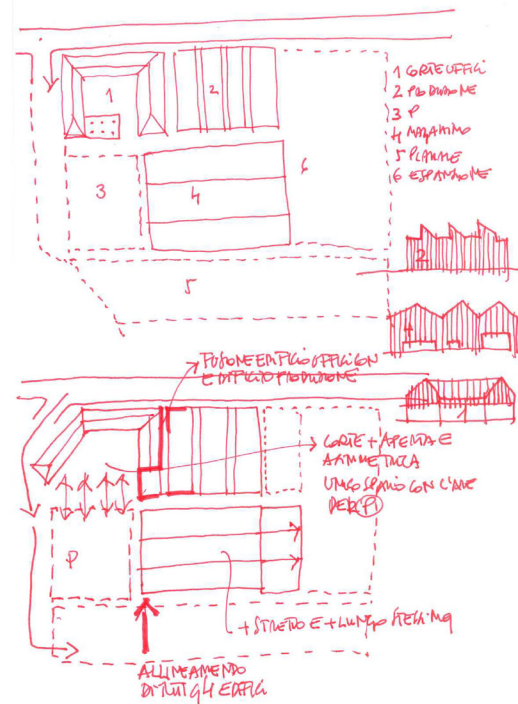 1 CORTE UFFICI
2 PRODUZIONE
3 P
4 MAGAZZINO
5 PIAZZALE
6 ESPANSIONE
1
2
3
4
6
5
2
4
1
FUSIONE EDIFICIO UFFICI CON
EDIFICIO PRODUZIONE
CORTE + APERTA E
ASIMMETRICA
UNICO SPAZIO CON L'AREA
DEI P
P
+ STRETTO E + LUNGO STESSI MQ
ALLINEAMENTO
DI TUTTI GLI EDIFICI